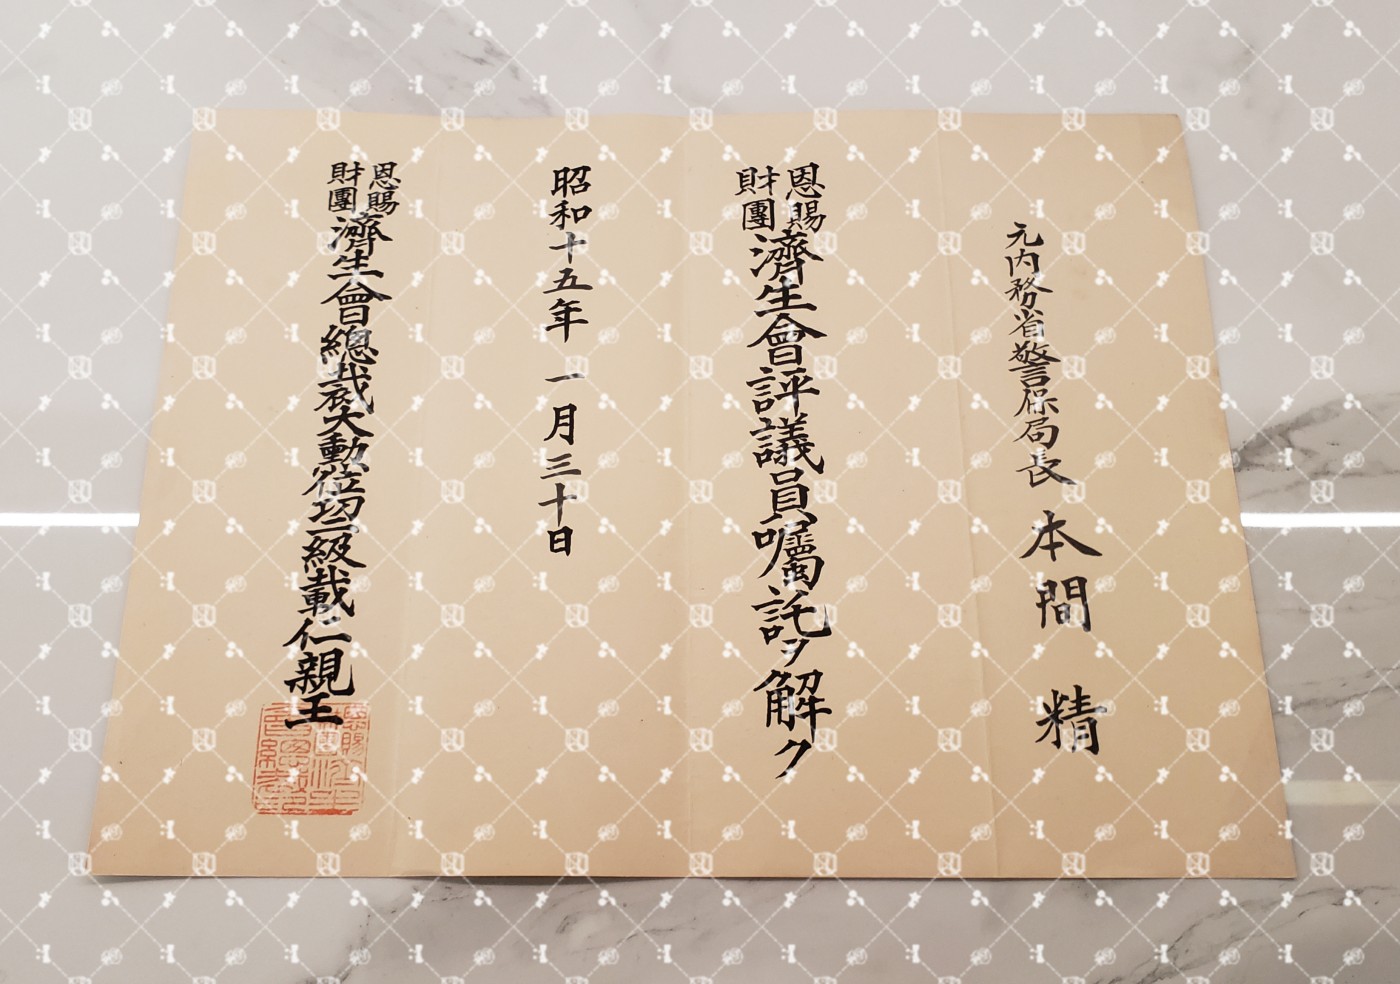 元内務省警保局長 本間 精
恩賜財團濟生會評議員囑託ヲ解ク
昭和十五年一月三十日
恩賜財團濟生會總裁大勳位功二級載仁親王